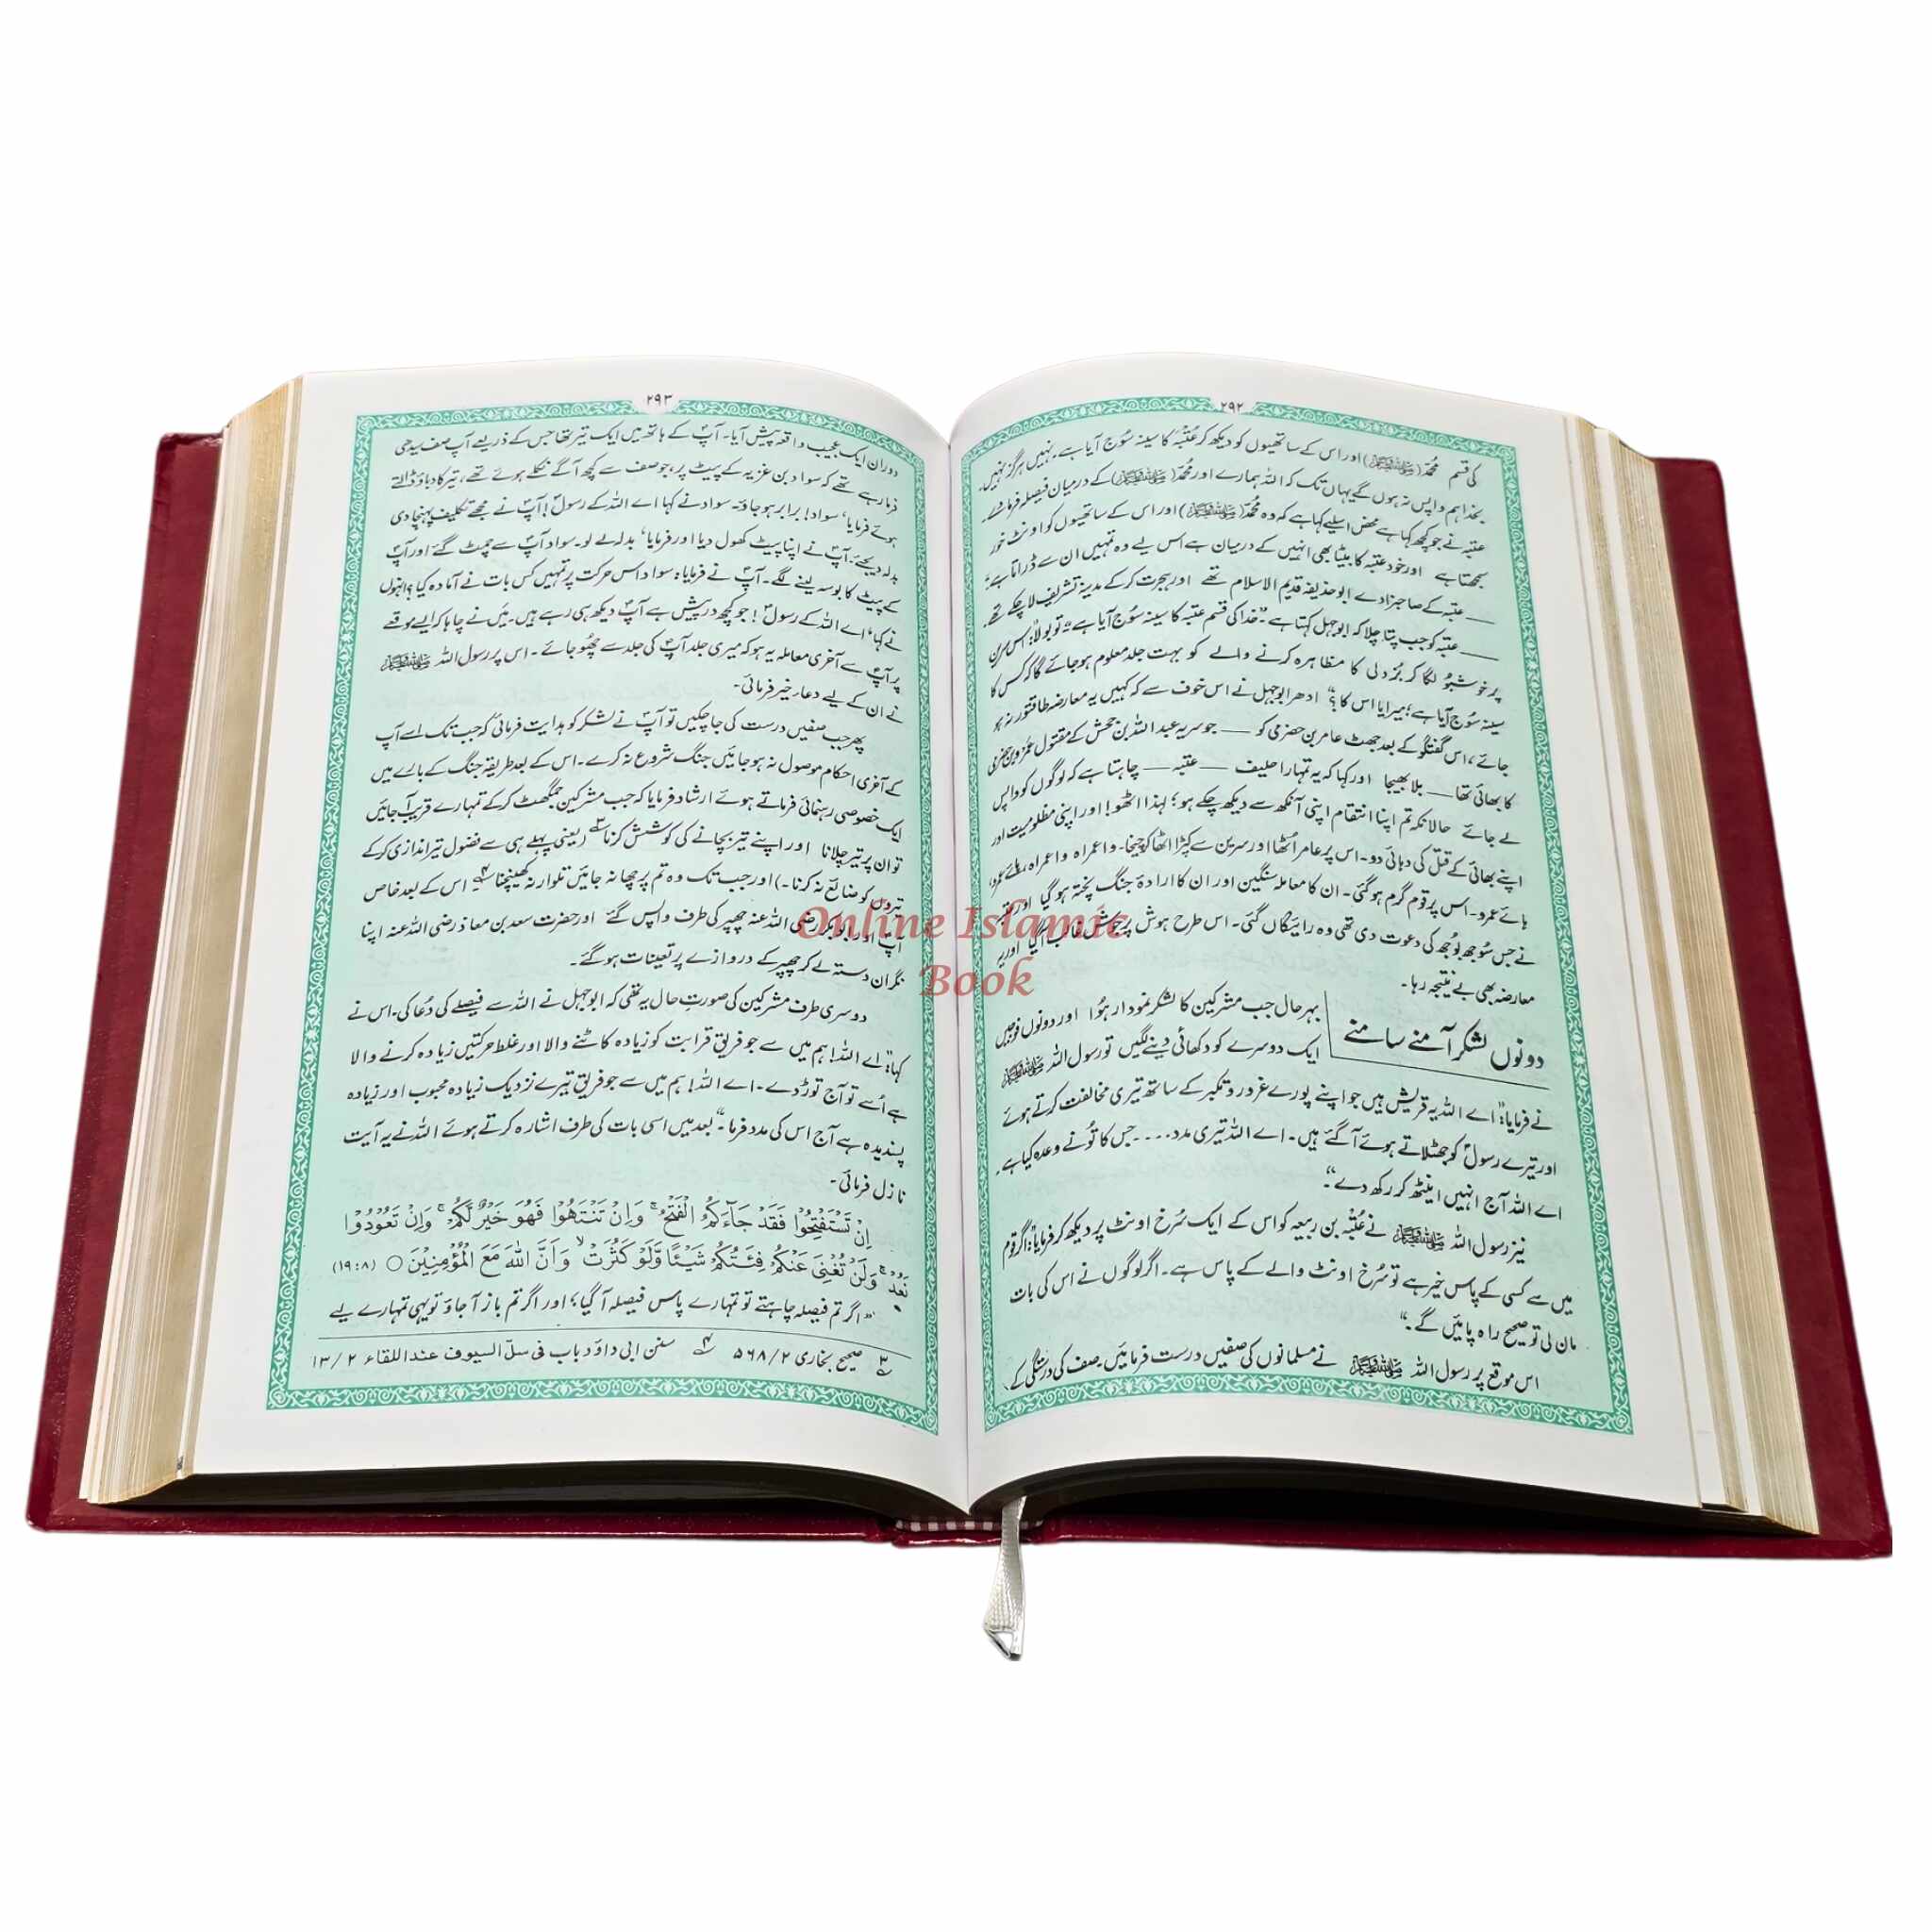 ۲۹۲
کی قسم محمّد (ﷺ) اور اس کے ساتھیوں کو دیکھ کر عُتبہ کا سینہ سُوج آیا ہے۔ نہیں ہرگز نہیں۔
بخدا ہم واپس نہ ہوں گے یہاں تک کہ اللہ ہمارے اور محمّد (ﷺ) کے درمیان فیصلہ فرما دے۔
عتبہ نے جو کچھ کہا ہے محض اسلیے کہا ہے کہ وہ محمّد (ﷺ) اور اس کے ساتھیوں کو اونٹ خور
سمجھتا ہے اور خود عتبہ کا بیٹا بھی انہیں کے درمیان ہے اس لیے وہ تمہیں ان سے ڈراتا ہے"
ــــ عتبہ کے صاحبزادے ابو حذیفہ قدیم الاسلام تھے اور ہجرت کر کے مدینہ تشریف لا چکے تھے۔
ــــ عتبہ کو جب پتا چلا کہ ابوجہل کہتا ہے۔ "خدا کی قسم عتبہ کا سینہ سُوج آیا ہے" تو بولا: "اس سرین
پر خوشبو لگا کر بُزدلی کا مظاہرہ کرنے والے کو بہت جلد معلوم ہو جائے گا کہ کس کا
سینہ سُوج آیا ہے؛ میرا یا اس کا؟" ادھر ابوجہل نے اس خوف سے کہ کہیں یہ معارضہ طاقتور نہ ہو
جائے، اس گفتگو کے بعد جھٹ عامر بن حضرمی کو ــــ جو سریہ عبد اللہ بن جحش کے مقتول عمرو بن حضرمی
کا بھائی تھا ــــ بلا بھیجا اور کہا کہ یہ تمہارا حلیف ــــ عتبہ ــــ چاہتا ہے کہ لوگوں کو واپس
لے جائے حالانکہ تم اپنا انتقام اپنی آنکھ سے دیکھ چکے ہو؛ لہٰذا اٹھو! اور اپنی مظلومیت اور
اپنے بھائی کے قتل کی دہائی دو۔ اس پر عامر اُٹھا اور سرین سے کپڑا اٹھا کر چیخا۔ واعمراہ واعمراہ، ہائے عمرو
ہائے عمرو۔ اس پر قوم گرم ہو گئی۔ ان کا معاملہ سنگین اور ان کا ارادۂ جنگ پختہ ہو گیا اور عتبہ
نے جس سُوجھ بُوجھ کی دعوت دی تھی وہ رائیگاں گئی۔ اس طرح ہوش پر جوش غالب آگیا اور یہ
معارضہ بھی بے نتیجہ رہا۔
دونوں لشکر آمنے سامنے
بہر حال جب مشرکین کا لشکر نمودار ہوُا اور دونوں فوجیں
ایک دوسرے کو دکھائی دینے لگیں تو رسول اللہ ﷺ
نے فرمایا: "اے اللہ یہ قریش ہیں جو اپنے پورے غرور و تکبر کے ساتھ تیری مخالفت کرتے ہوئے
اور تیرے رسولؐ کو جھٹلاتے ہوئے آگئے ہیں۔ اے اللہ تیری مدد.... جس کا تُو نے وعدہ کیا ہے۔
اے اللہ آج انہیں اینٹھ کر رکھ دے"۔
نیز رسول اللہ ﷺ نے عُتبہ بن ربیعہ کو اس کے ایک سُرخ اونٹ پر دیکھ کر فرمایا: "اگر قوم
میں سے کسی کے پاس خیر ہے تو سُرخ اونٹ والے کے پاس ہے۔ اگر لوگوں نے اس کی بات
مان لی تو صحیح راہ پائیں گے۔"
اس موقع پر رسول اللہ ﷺ نے مسلمانوں کی صفیں درست فرمائیں۔ صف کی درستگی کے
۲۹۳
دوران ایک عجیب واقعہ پیش آیا۔ آپؐ کے ہاتھ میں ایک تیر تھا جس کے ذریعے آپ صف سیدھی
فرما رہے تھے کہ سواد بن غزیہ کے پیٹ پر، جو صف سے کچھ آگے نکلے ہوئے تھے، تیر کا دباؤ ڈالتے
ہوئے فرمایا، سواد! برابر ہو جاؤ۔ سواد نے کہا اے اللہ کے رسولؐ! آپؐ نے مجھے تکلیف پہنچا دی
بدلہ دیجیے۔ آپؐ نے اپنا پیٹ کھول دیا اور فرمایا، بدلہ لے لو۔ سواد آپؐ سے چمٹ گئے اور آپؐ
کے پیٹ کا بوسہ لینے لگے۔ آپؐ نے فرمایا: سواد اس حرکت پر تمہیں کس بات نے آمادہ کیا؟ انہوں
نے کہا "اے اللہ کے رسولؐ! جو کچھ درپیش ہے آپؐ دیکھ ہی رہے ہیں۔ میں نے چاہا کہ ایسے موقعے
پر آپؐ سے آخری معاملہ یہ ہو کہ میری جلد آپؐ کی جلد سے چھُو جائے۔ اس پر رسول اللہ ﷺ
نے ان کے لیے دعاء خیر فرمائی۔
پھر جب صفیں درست کی جا چکیں تو آپؐ نے لشکر کو ہدایت فرمائی کہ جب تک اسے آپ
کے آخری احکام موصول نہ ہو جائیں جنگ شروع نہ کرے۔ اس کے بعد طریقۂ جنگ کے بارے میں
ایک خصوصی رہنمائی فرماتے ہوئے ارشاد فرمایا کہ جب مشرکین جمگھٹ کر کے تمہارے قریب آجائیں
تو ان پر تیر چلانا اور اپنے تیر بچانے کی کوشش کرنا۳ (یعنی پہلے ہی سے فضول تیر اندازی کر کے
تیروں کو ضائع نہ کرنا۔) اور جب تک وہ تم پر چھا نہ جائیں تلوار نہ کھینچنا۴ اس کے بعد خاص
آپؐ اور ابوبکر رضی اللہ عنہ چھپر کی طرف واپس گئے اور حضرت سعد بن معاذ رضی اللہ عنہ اپنا
نگران دستہ لے کر چھپر کے دروازے پر تعینات ہو گئے۔
دوسری طرف مشرکین کی صورتِ حال یہ تھی کہ ابوجہل نے اللہ سے فیصلے کی دُعا کی۔ اس نے
کہا: "اے اللہ! ہم میں سے جو فریق قرابت کو زیادہ کاٹنے والا اور غلط حرکتیں زیادہ کرنے والا
ہے اُسے تو آج توڑ دے۔ اے اللہ! ہم میں سے جو فریق تیرے نزدیک زیادہ محبوب اور زیادہ
پسندیدہ ہے آج اس کی مدد فرما۔" بعد میں اسی بات کی طرف اشارہ کرتے ہوئے اللہ نے یہ آیت
نازل فرمائی۔
اِنْ تَسْتَفْتِحُوْا فَقَدْ جَآءَكُمُ الْفَتْحُ ۚ وَاِنْ تَنْتَهُوْا فَهُوَ خَيْرٌ لَّكُمْ ۚ وَاِنْ تَعُوْدُوْا
نَعُدْ ۚ وَلَنْ تُغْنِىَ عَنْكُمْ فِئَتُكُمْ شَيْئًا وَّلَوْ كَثُرَتْ ۙ وَاَنَّ اللّٰهَ مَعَ الْمُؤْمِنِيْنَ ○ (۸:۱۹)
"اگر تم فیصلہ چاہتے تو تمہارے پاس فیصلہ آگیا؛ اور اگر تم باز آجاؤ تو یہی تمہارے لیے
۳ صحیح بخاری ۲/۵۶۸ ۴ سنن ابی داؤد باب فی سلّ السیوف عند اللقاء ۲/۱۳
Online Islamic
Book